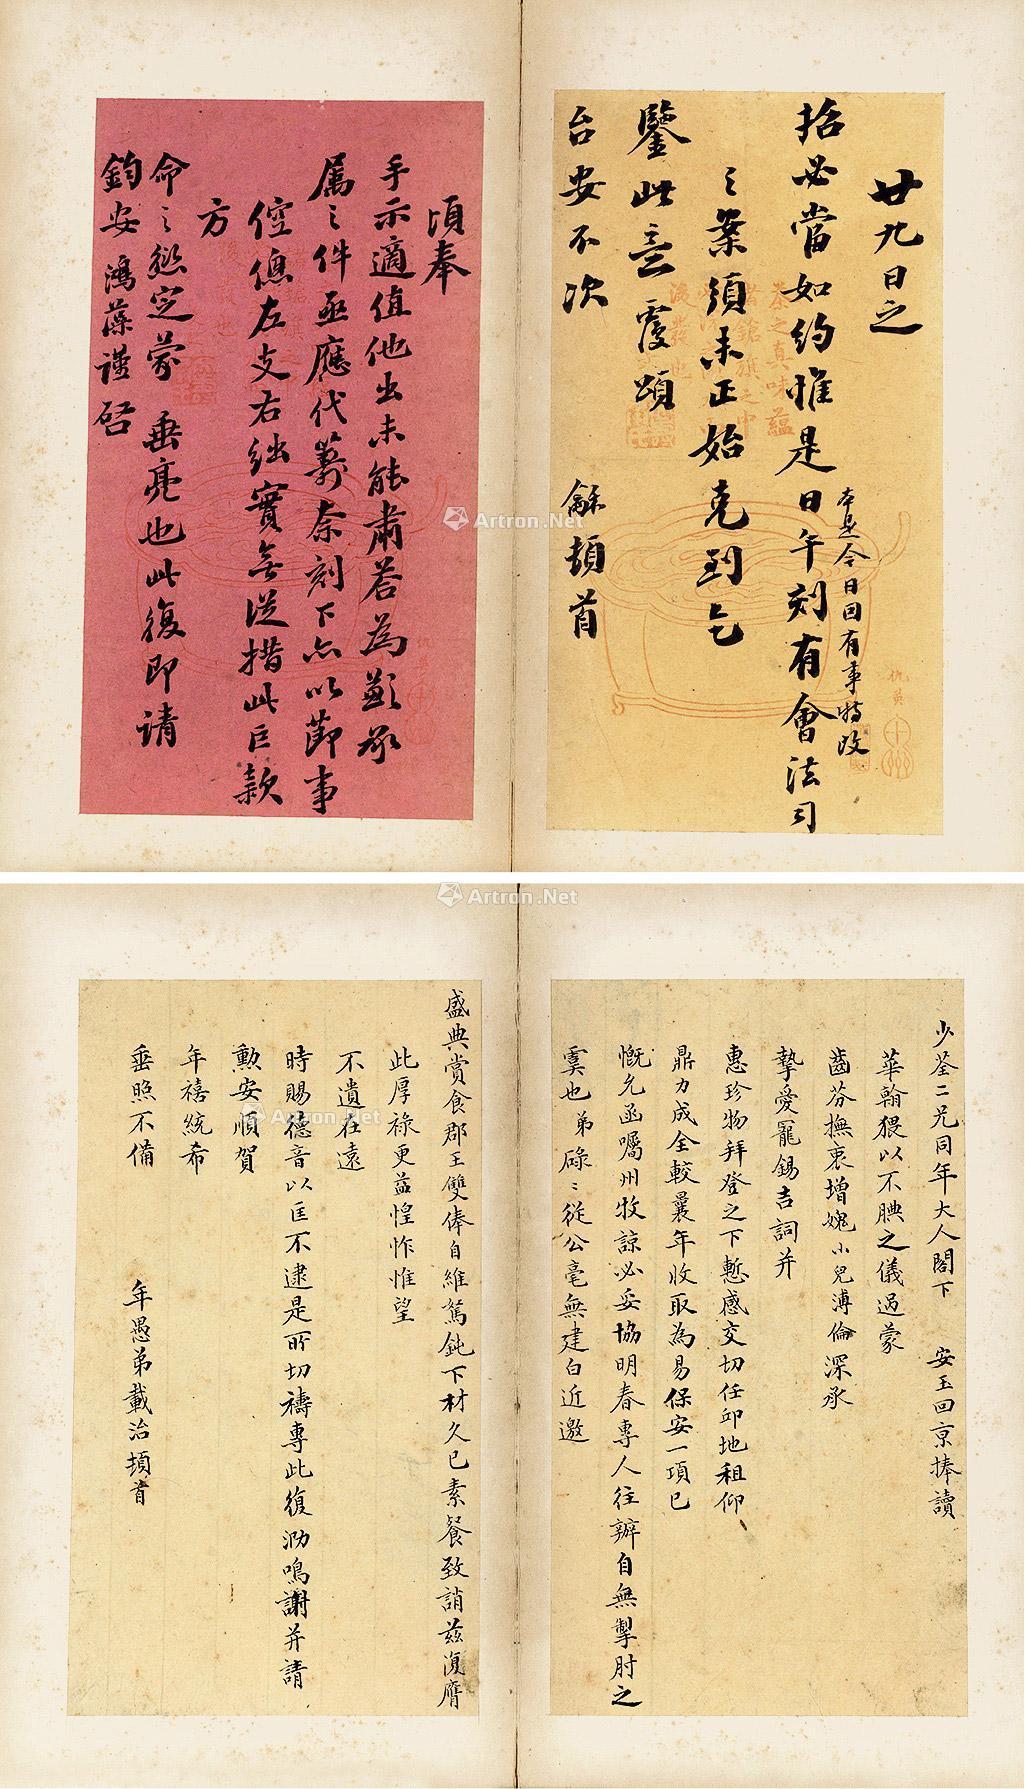 廿九日之
括必當如約惟是日午刻有會法司
本是今日因有事特改
之案須未正始克到乞
鑒此意覆頌
台安不次 龢頓首
茶之真味蘊
仇英
頃奉
手示適值他出未能肅荅為歉承
属之件亟應代籌奈刻下亦以節事
倥傯左支右絀實無從措此巨款
方
命之愆定蒙垂亮也此復即請
鈞安鴻藻謹啓
Artron.Net
Artron.Net
少荃二兄同年大人閣下 安玉回京捧讀
華翰猥以不腆之儀過蒙
齒芬撫衷增媿小兒溥倫深承
摯愛寵錫吉詞并
惠珍物拜登之下慙感交切任邱地租仰
鼎力成全較曩年收取為易保安一項已
慨允函囑州牧諒必妥協明春專人往辦自無掣肘之
虞也弟碌碌從公毫無建白近邀
盛典賞食郡王雙俸自維駑鈍下材久已素餐致誚茲復膺
此厚祿更益惶怍惟望
不遺在遠
時賜德音以匡不逮是所切禱專此復泐鳴謝并請
勳安順賀
年禧統希
垂照不備
年愚弟載治頓首
Artron.Net